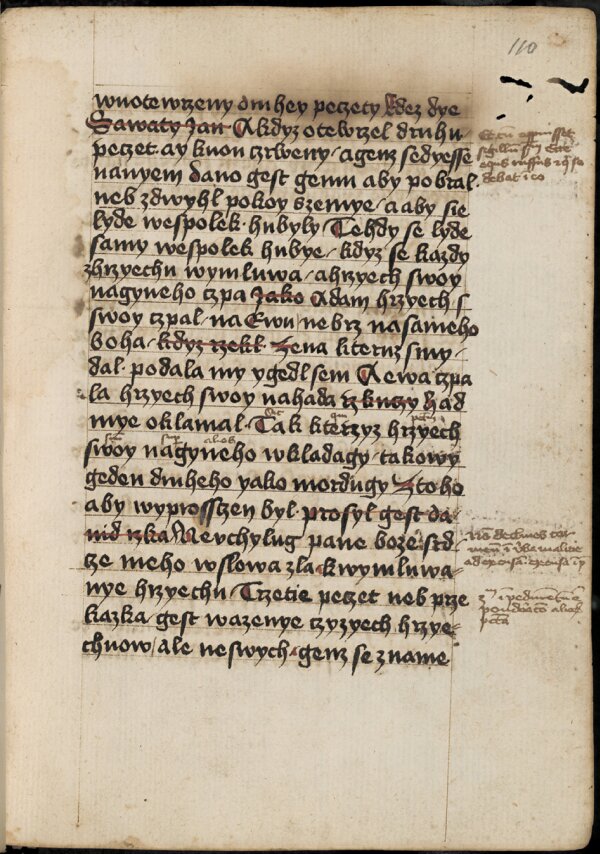 110
wnotewrzeny druhey peczety kdez dye
Swaty Jan Akdyz otewrzel druhu
peczet ay kuon czrweny agenz sedyesse
nanyem dano gest gemu aby pobral
neb zdwyhl pokoy szemye aaby sie
lyde wespolek hubyly Tehdy se lyde
samy wespolek hubye kdyz se kazdy
zhrzyechu wymluwa ahrzyech swoy
nagyneho czpa Jako Adam hrzyech s
swoy czpal na Ewu nebrz nasameho
boha kdyz rzekl Zena kteruz s my
dal podala my ygedl sem Aewa czpa
la hrzyech swoy nahada rzkuczy had
mye oklamal Tak kterzyz hrzyech
swoy nagyneho wkladagy takowy
geden druheho yako mordugy Ztoho
aby wyprosstzen byl prosyl gest da
uid rzka Nevchylug pane boze srd
cze meho wslowa zla kwymluwa
nye hrzyechu Trzetie peczet neb prze
kazka gest wazenye czyzyech hrzye
chuow ale neswych genz se zname